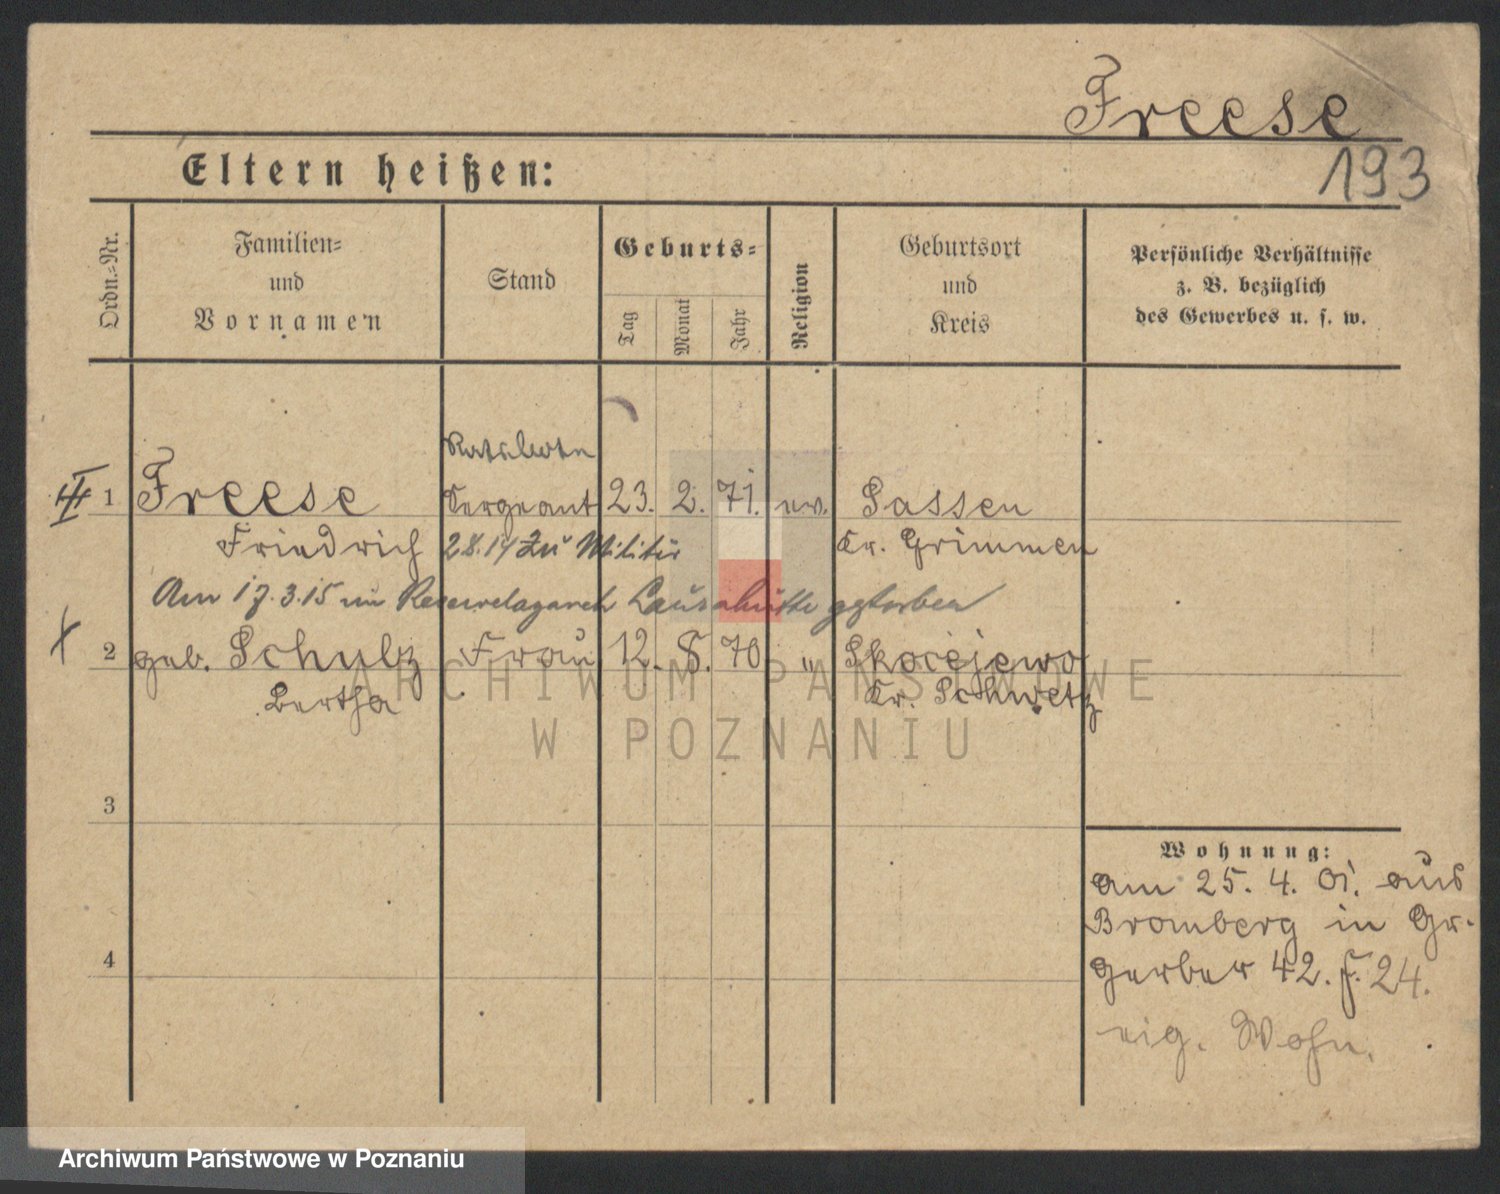 Freese
193
Eltern heißen:
Ordn.-Nr.
Familien-
und
Vornamen
Stand
Geburts-
Tag
Monat
Jahr
Religion
Geburtsort
und
Kreis
Persönliche Verhältnisse
z. B. bezüglich
des Gewerbes u. s. w.
Ratsbote
III 1 Freese Sergeant 23. 2. 71. ev. Sassen
Friedrich 2.8.14 zu Militär Kr. Grimmen
Am 17.3.15 im Reservelazareth gestorben
X 2 geb. Schulz Frau 12. 8. 70 " Skocejewo
Bertha Kr. Schwetz
ARCHIWUM PAŃSTWOWE
W POZNANIU
3
Wohnung:
am 25. 4. 01. aus
Bromberg in Gr.
4
Gerber 42. F. 24.
eig. Wohn.
Archiwum Państwowe w Poznaniu